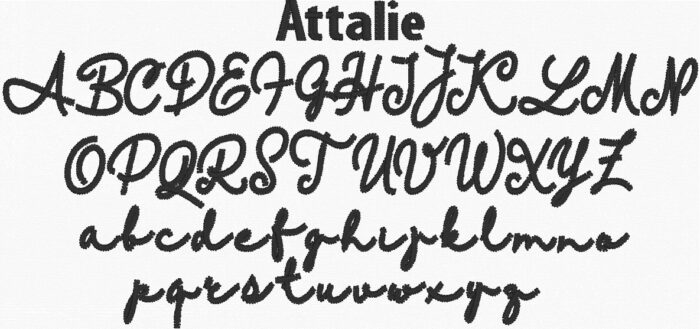 Attalie
ABCDEFGHIJKLMN
OPQRSTUVWXYZ
abcdefghijklmno
pqrstuvwxyz